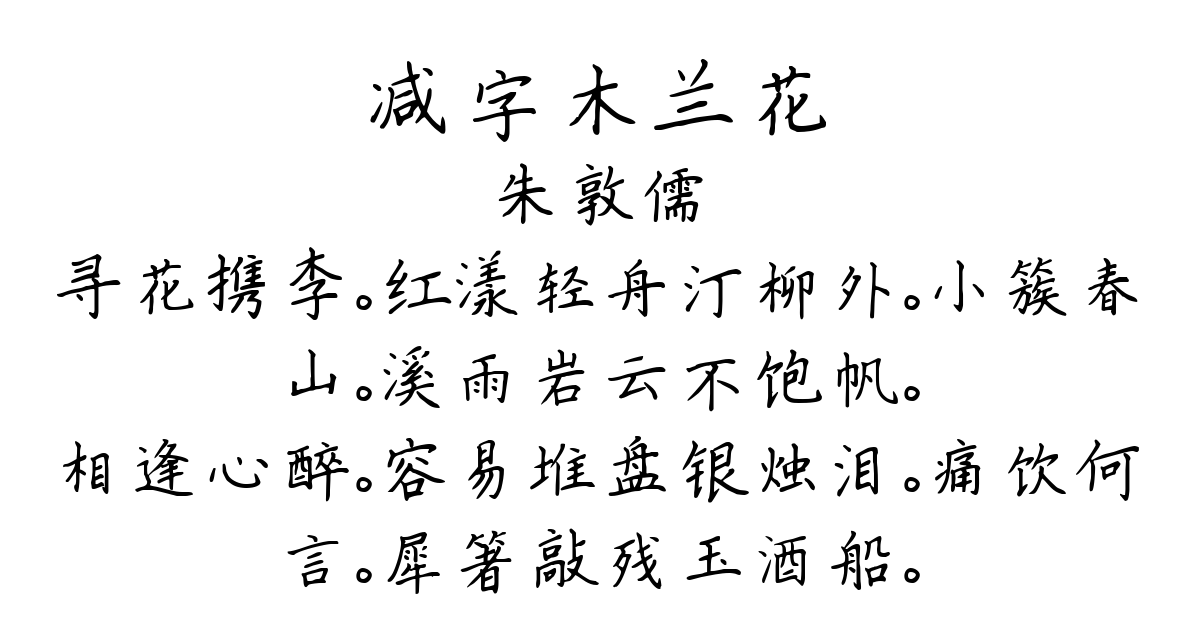 减字木兰花
朱敦儒
寻花携李。红漾轻舟汀柳外。小簇春
山。溪雨岩云不饱帆。
相逢心醉。容易堆盘银烛泪。痛饮何
言。犀箸敲残玉酒船。